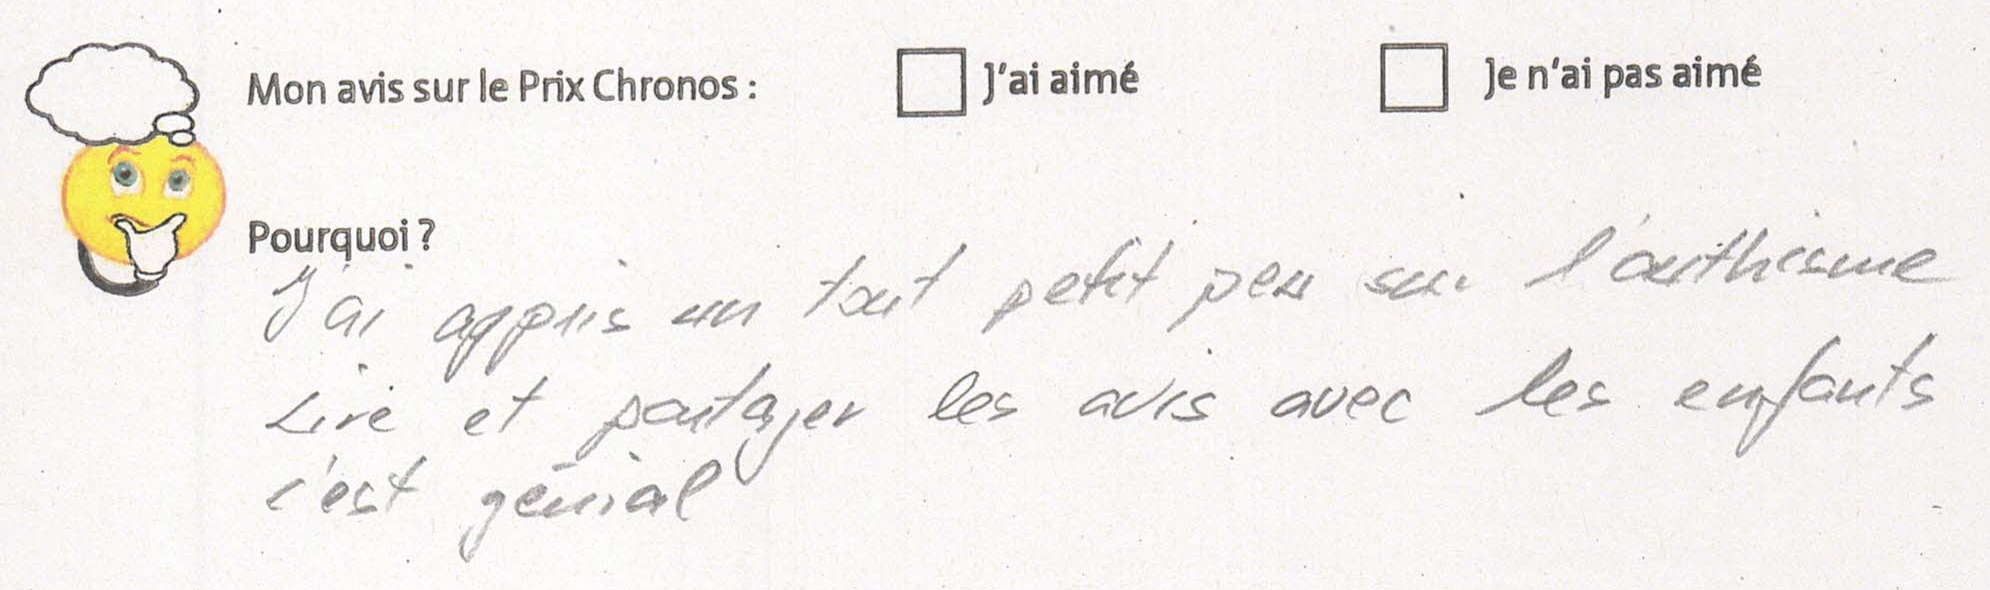 Mon avis sur le Prix Chronos : J'ai aimé Je n'ai pas aimé
Pourquoi ?
J'ai appris un tout petit peu sur l'authisme
Lire et partager les avis avec les enfants
c'est génial